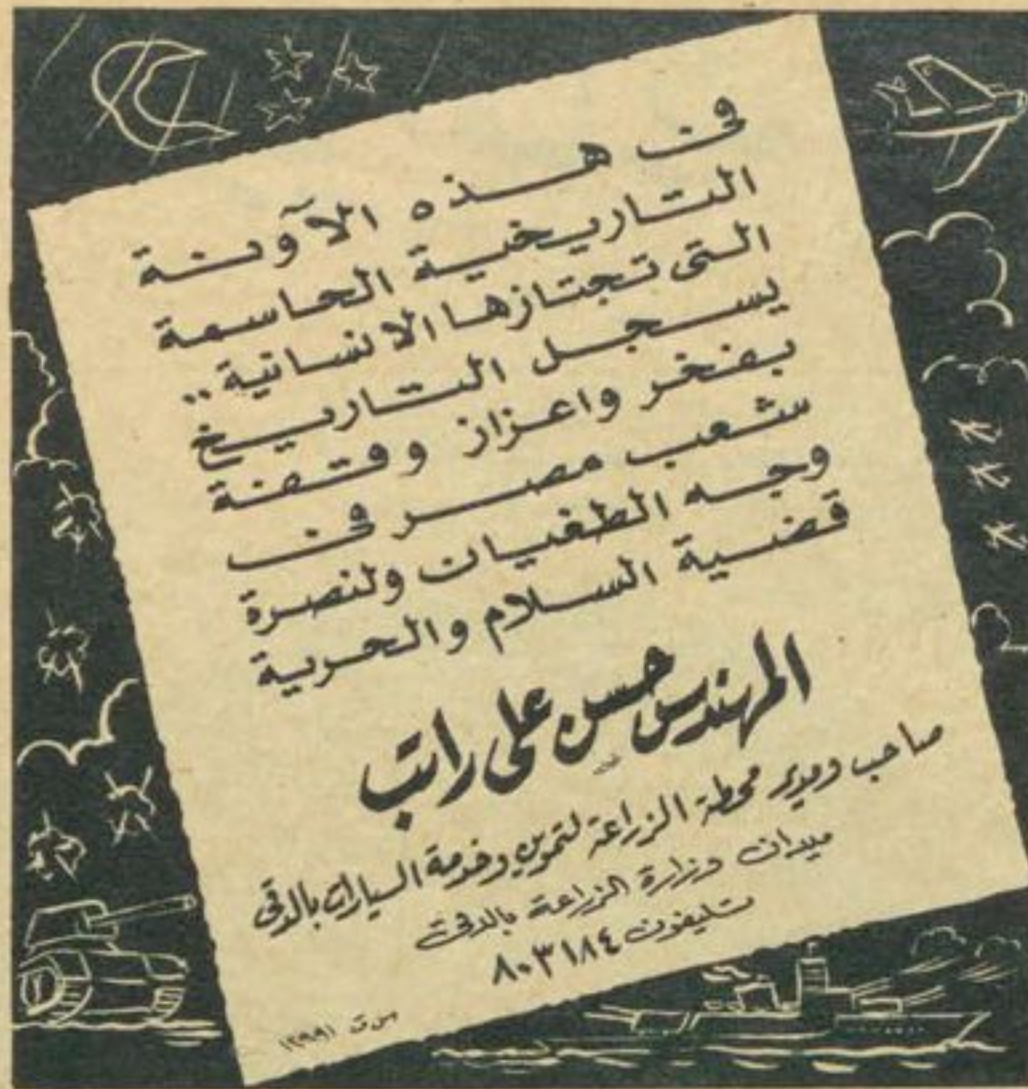 فى هذه الآونة
التاريخية الحاسمة
التى تجتازها الانسانية ..
يسجل التاريخ
بفخر واعزاز وقفة
شعب مصر فى
وجه الطغيان ولنصرة
قضية السلام والحرية
المهندس حسن على راتب
صاحب ومدير محطة الزراعة لتموين وخدمة السيارات بالدقى
ميدان وزارة الزراعة بالدقى
تليفون ٨٠٣١٨٤
س ت ١٢٩٩١